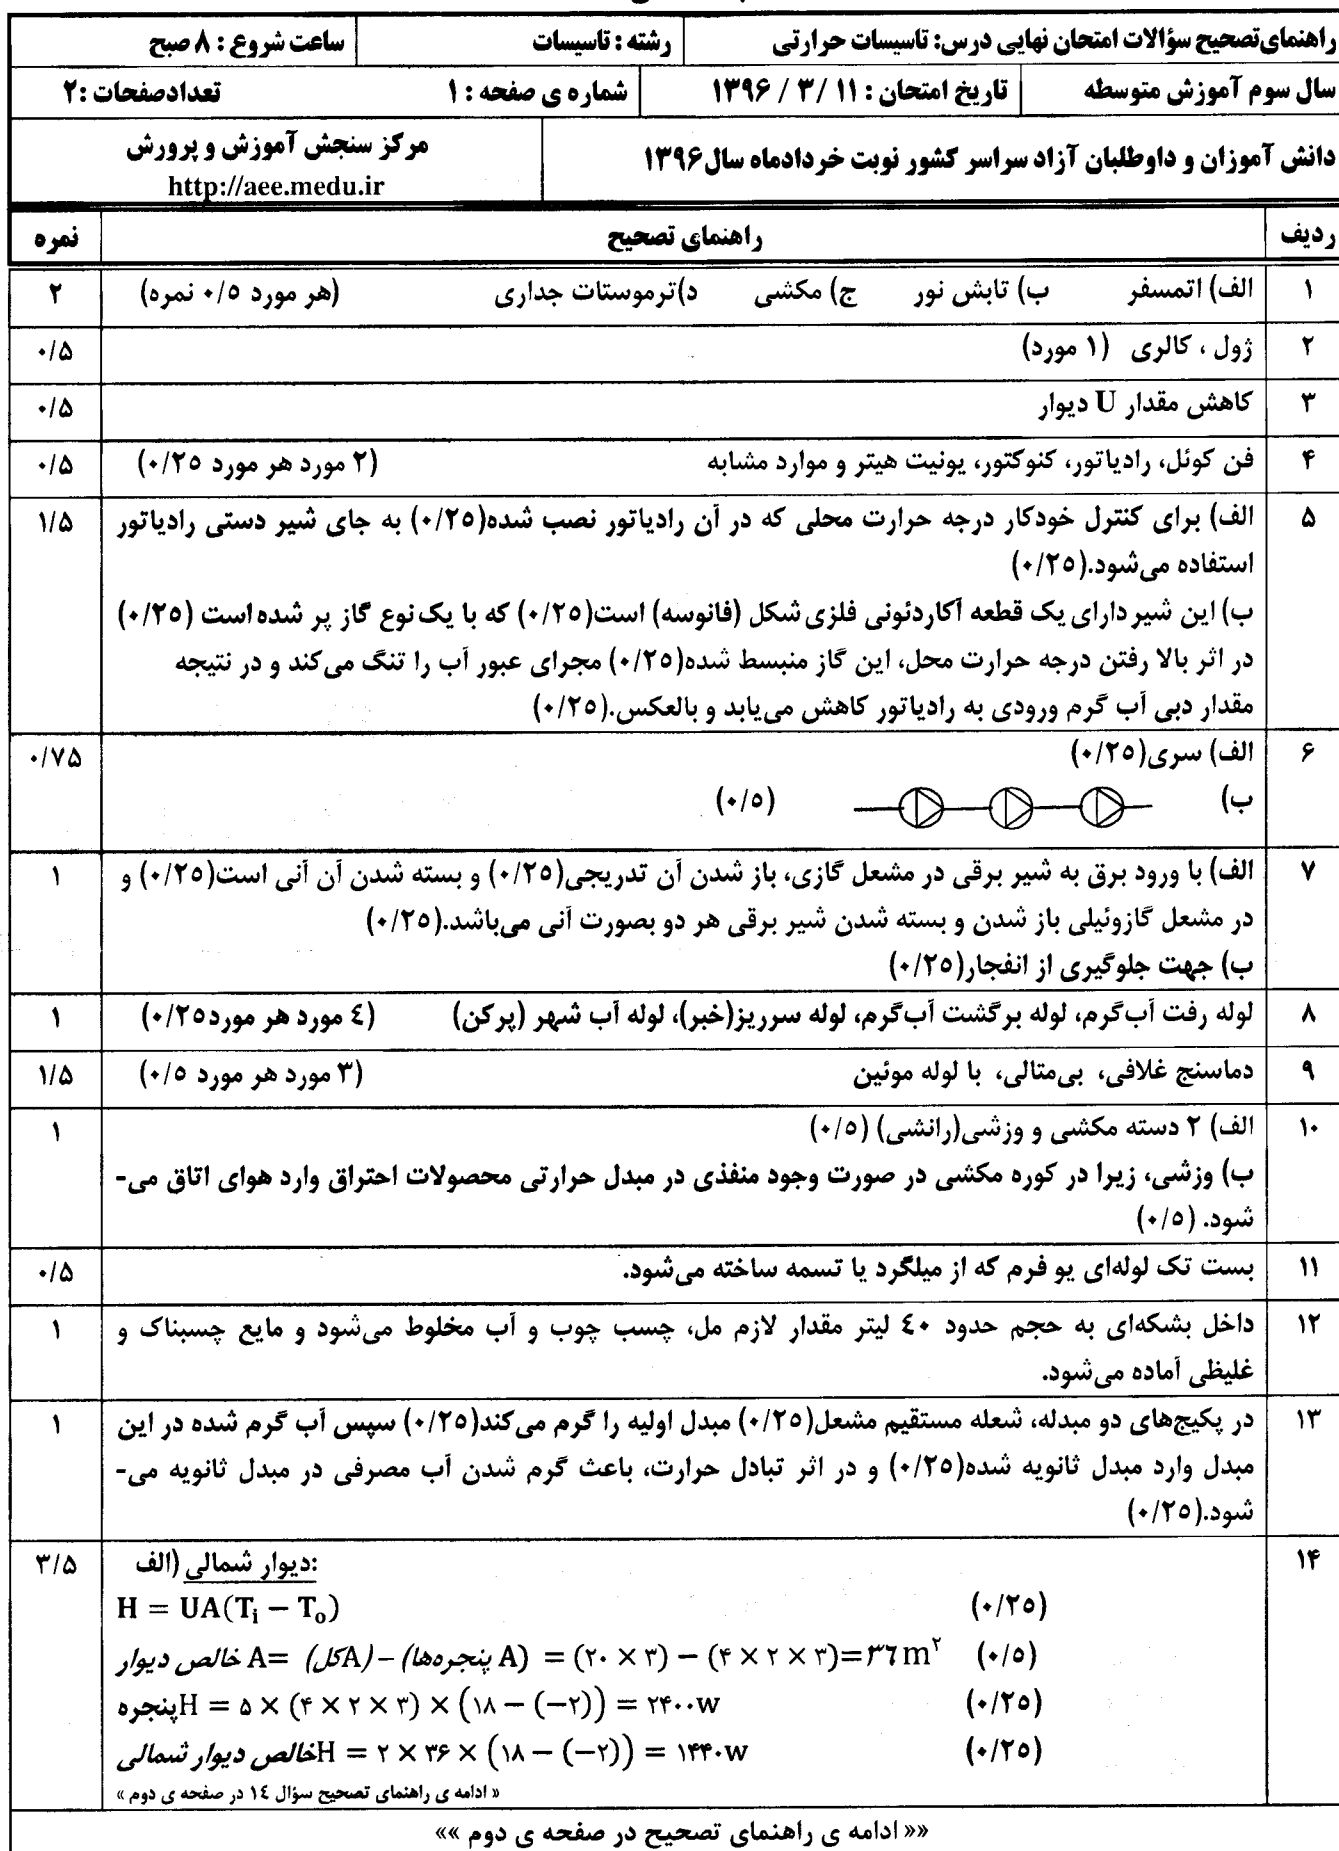 راهنمای تصحیح سؤالات امتحان نهایی درس: تاسیسات حرارتی رشته : تاسیسات ساعت شروع : ۸ صبح
سال سوم آموزش متوسطه تاریخ امتحان : ۱۱ / ۳ / ۱۳۹۶ شماره ی صفحه : ۱ تعدادصفحات :۲
دانش آموزان و داوطلبان آزاد سراسر کشور نوبت خردادماه سال ۱۳۹۶ مرکز سنجش آموزش و پرورش
http://aee.medu.ir
ردیف راهنمای تصحیح نمره
۱ الف) اتمسفر ب) تابش نور ج) مکشی د)ترموستات جداری (هر مورد ۰/۵ نمره) ۲
۲ ژول ، کالری (۱ مورد) ۰/۵
۳ کاهش مقدار U دیوار ۰/۵
۴ فن کوئل، رادیاتور، کنوکتور، یونیت هیتر و موارد مشابه (۲ مورد هر مورد ۰/۲۵) ۰/۵
۵ الف) برای کنترل خودکار درجه حرارت محلی که در آن رادیاتور نصب شده(۰/۲۵) به جای شیر دستی رادیاتور ۱/۵
استفاده می‌شود.(۰/۲۵)
ب) این شیر دارای یک قطعه آکاردئونی فلزی شکل (فانوسه) است(۰/۲۵) که با یک نوع گاز پر شده است (۰/۲۵)
در اثر بالا رفتن درجه حرارت محل، این گاز منبسط شده(۰/۲۵) مجرای عبور آب را تنگ می‌کند و در نتیجه
مقدار دبی آب گرم ورودی به رادیاتور کاهش می‌یابد و بالعکس.(۰/۲۵)
۶ الف) سری(۰/۲۵) ۰/۷۵
ب) (۰/۵)
۷ الف) با ورود برق به شیر برقی در مشعل گازی، باز شدن آن تدریجی(۰/۲۵) و بسته شدن آن آنی است(۰/۲۵) و ۱
در مشعل گازوئیلی باز شدن و بسته شدن شیر برقی هر دو بصورت آنی می‌باشد.(۰/۲۵)
ب) جهت جلوگیری از انفجار(۰/۲۵)
۸ لوله رفت آب‌گرم، لوله برگشت آب‌گرم، لوله سرریز(خبر)، لوله آب شهر (پرکن) (٤ مورد هر مورد۰/۲۵) ۱
۹ دماسنج غلافی، بی‌متالی، با لوله موئین (۳ مورد هر مورد ۰/۵) ۱/۵
۱۰ الف) ۲ دسته مکشی و وزشی(رانشی) (۰/۵) ۱
ب) وزشی، زیرا در کوره مکشی در صورت وجود منفذی در مبدل حرارتی محصولات احتراق وارد هوای اتاق می-
شود. (۰/۵)
۱۱ بست تک لوله‌ای یو فرم که از میلگرد یا تسمه ساخته می‌شود. ۰/۵
۱۲ داخل بشکه‌ای به حجم حدود ٤۰ لیتر مقدار لازم مل، چسب چوب و آب مخلوط می‌شود و مایع چسبناک و ۱
غلیظی آماده می‌شود.
۱۳ در پکیج‌های دو مبدله، شعله مستقیم مشعل(۰/۲۵) مبدل اولیه را گرم می‌کند(۰/۲۵) سپس آب گرم شده در این ۱
مبدل وارد مبدل ثانویه شده(۰/۲۵) و در اثر تبادل حرارت، باعث گرم شدن آب مصرفی در مبدل ثانویه می-
شود.(۰/۲۵)
۱۴ دیوار شمالی (الف: ۳/۵
H = UA(Tᵢ − Tₒ) (۰/۲۵)
خالص دیوار A= (کلA) − (پنجره‌ها A) = (۲۰ × ۳) − (۴ × ۲ × ۳)=۳٦ m² (۰/۵)
پنجرهH = ۵ × (۴ × ۲ × ۳) × (۱۸ − (−۲)) = ۲۴۰۰w (۰/۲۵)
خالص دیوار شمالیH = ۲ × ۳۶ × (۱۸ − (−۲)) = ۱۴۴۰w (۰/۲۵)
« ادامه ی راهنمای تصحیح سؤال ۱٤ در صفحه ی دوم »
«« ادامه ی راهنمای تصحیح در صفحه ی دوم »»